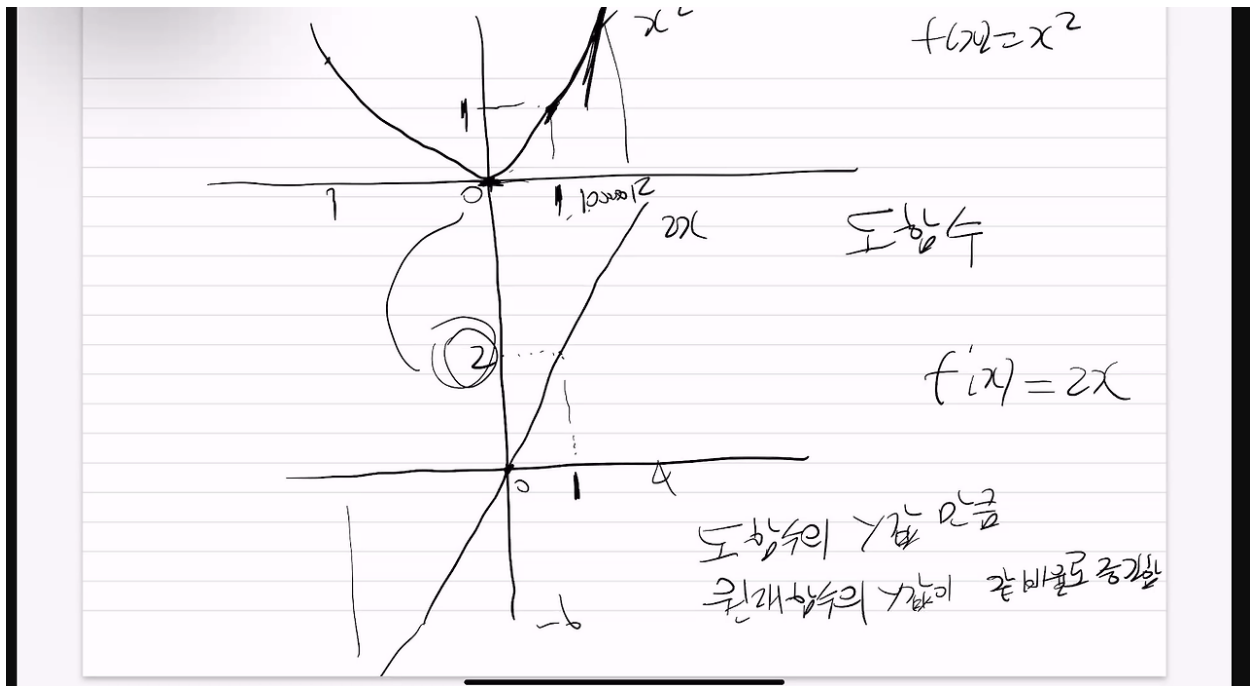 x²
f(x)=x²
1
0
1
1.0000012
1
2x
도함수
2
f'(x)=2x
0
1
4
도함수의 y값 만큼
원래함수의 y값이 같은 비율로 증가함
-6